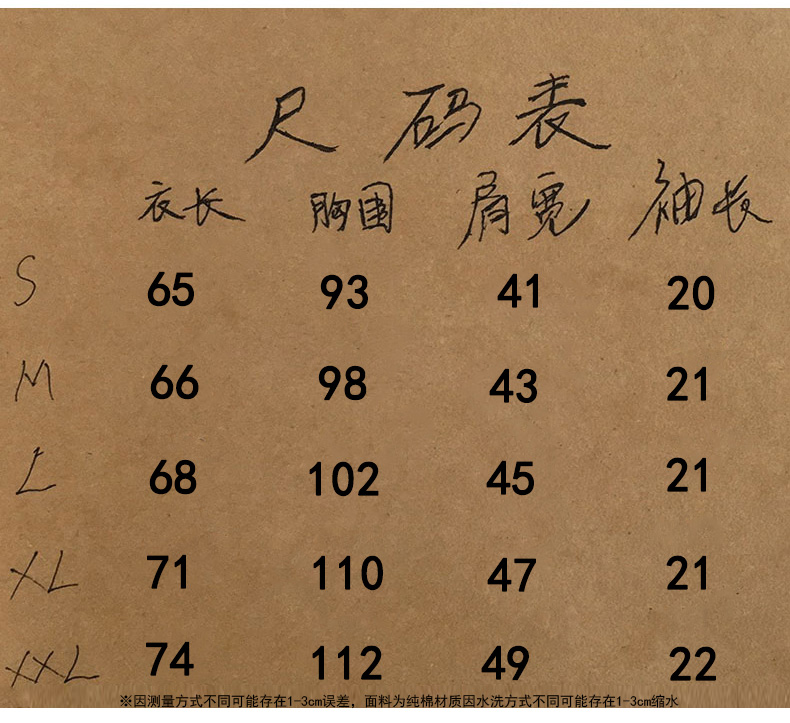 尺码表
衣长 胸围 肩宽 袖长
S 65 93 41 20
M 66 98 43 21
L 68 102 45 21
XL 71 110 47 21
XXL 74 112 49 22
※因测量方式不同可能存在1-3cm误差，面料为纯棉材质因水洗方式不同可能存在1-3cm缩水